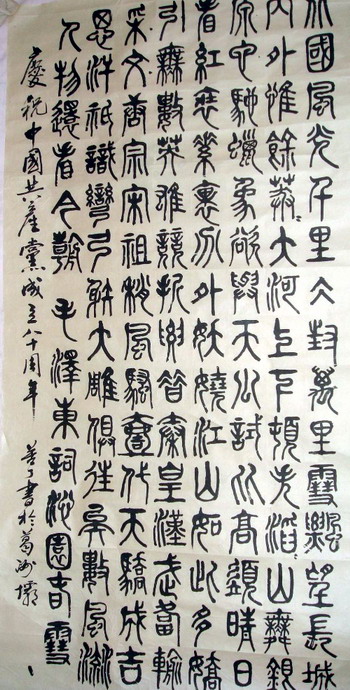 北國風光千里冰封萬里雪飄望長城
內外惟餘莽莽大河上下頓失滔滔山舞銀
蛇原馳蠟象欲與天公試比高須晴日
看紅裝素裹分外妖嬈江山如此多嬌
引無數英雄競折腰惜秦皇漢武略輸
采文唐宗宋祖稍風騷壹代天驕成吉
思汗祇識彎弓射大雕俱往矣數風流
人物還看今朝 毛澤東詞沁園春雪
慶祝中國共產黨成立八十周年 書於葛洲壩